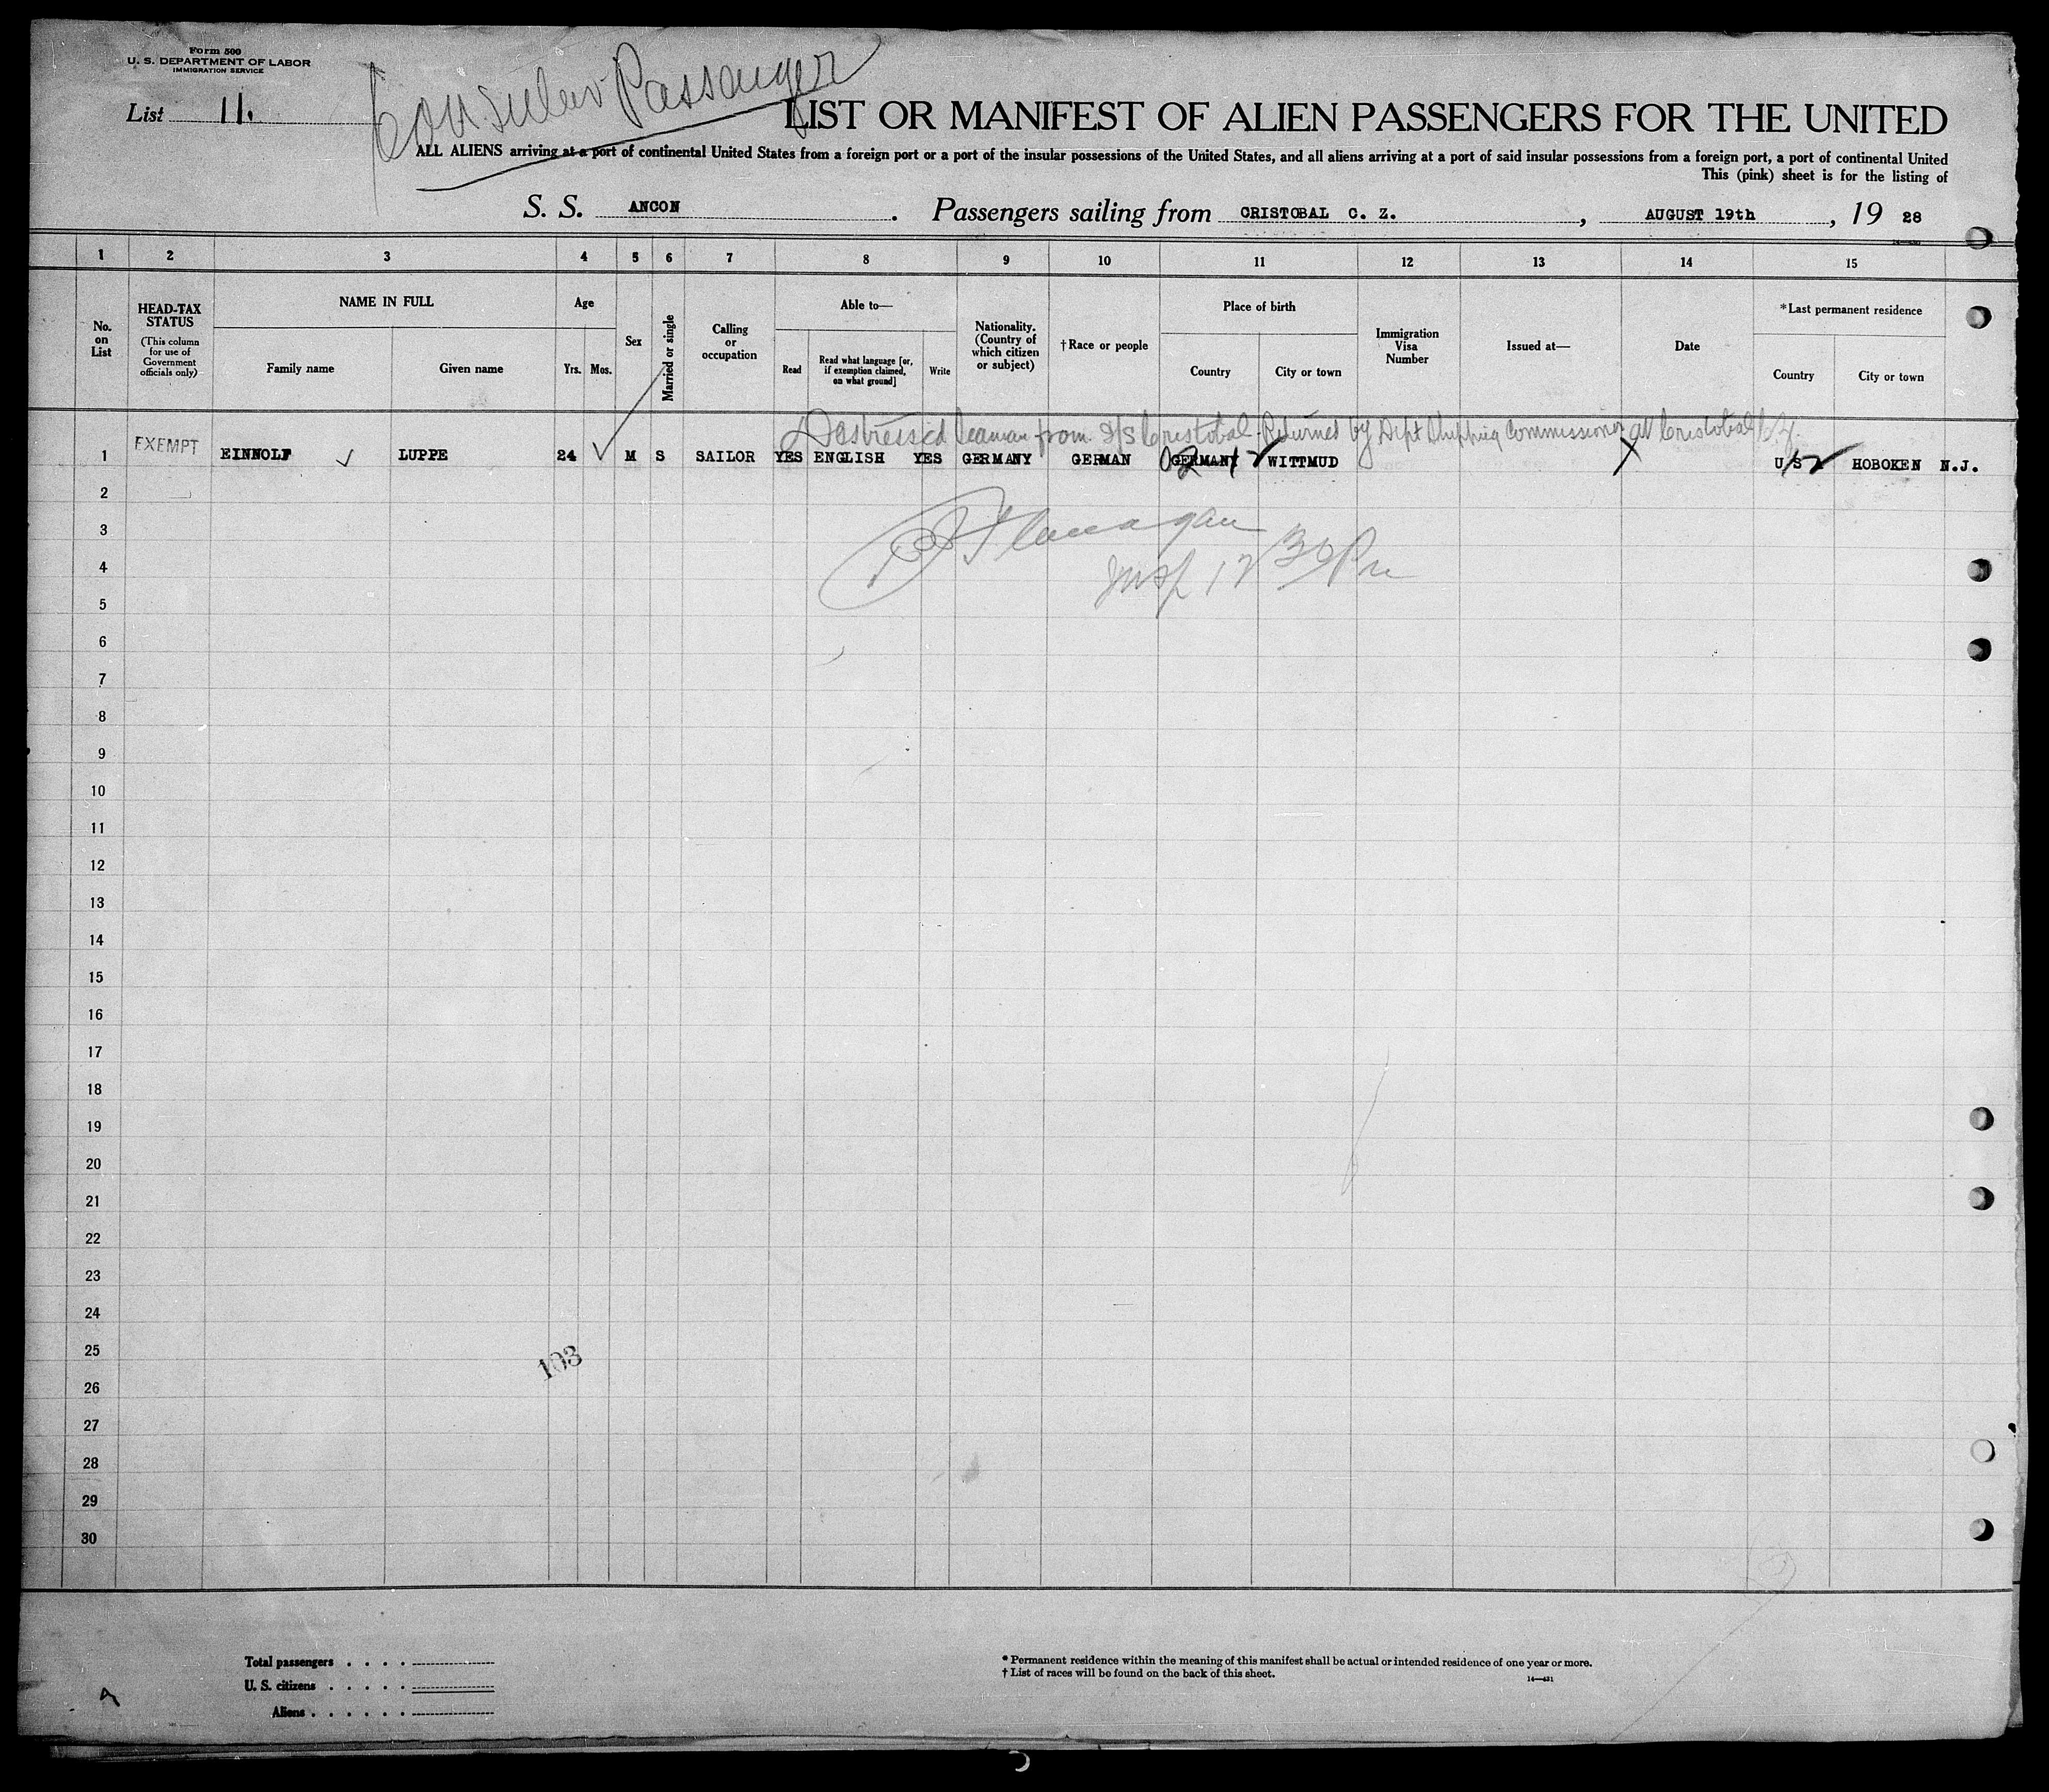 Form 500
U. S. DEPARTMENT OF LABOR
IMMIGRATION SERVICE
List 11.
Consular Passenger
LIST OR MANIFEST OF ALIEN PASSENGERS FOR THE UNITED
ALL ALIENS arriving at a port of continental United States from a foreign port or a port of the insular possessions of the United States, and all aliens arriving at a port of said insular possessions from a foreign port, a port of continental United
This (pink) sheet is for the listing of
S. S. ANCON. Passengers sailing from CRISTOBAL C. Z., AUGUST 19th, 19 28
1 2 3 4 5 6 7 8 9 10 11 12 13 14 15
No. on List
HEAD-TAX STATUS
(This column for use of Government officials only)
NAME IN FULL
Family name Given name
Age
Yrs. Mos.
Sex
Married or single
Calling or occupation
Able to—
Read
Read what language [or, if exemption claimed, on what ground]
Write
Nationality. (Country of which citizen or subject)
†Race or people
Place of birth
Country City or town
Immigration Visa Number
Issued at—
Date
*Last permanent residence
Country City or town
Distressed Seaman from S/S Cristobal. Returned by Dept Shipping Commissioner at Cristobal C.Z.
1 EXEMPT EINNOLF LUPPE 24 M S SAILOR YES ENGLISH YES GERMANY GERMAN GERMANY WITTMUD U S HOBOKEN N.J.
2
3 Flanagan
4 Insp 12 30 Pm
5
6
7
8
9
10
11
12
13
14
15
16
17
18
19
20
21
22
23
24
25 103
26
27
28
29
30
Total passengers . . . .
U. S. citizens . . . . .
Aliens . . . . . .
* Permanent residence within the meaning of this manifest shall be actual or intended residence of one year or more.
† List of races will be found on the back of this sheet.
14—431